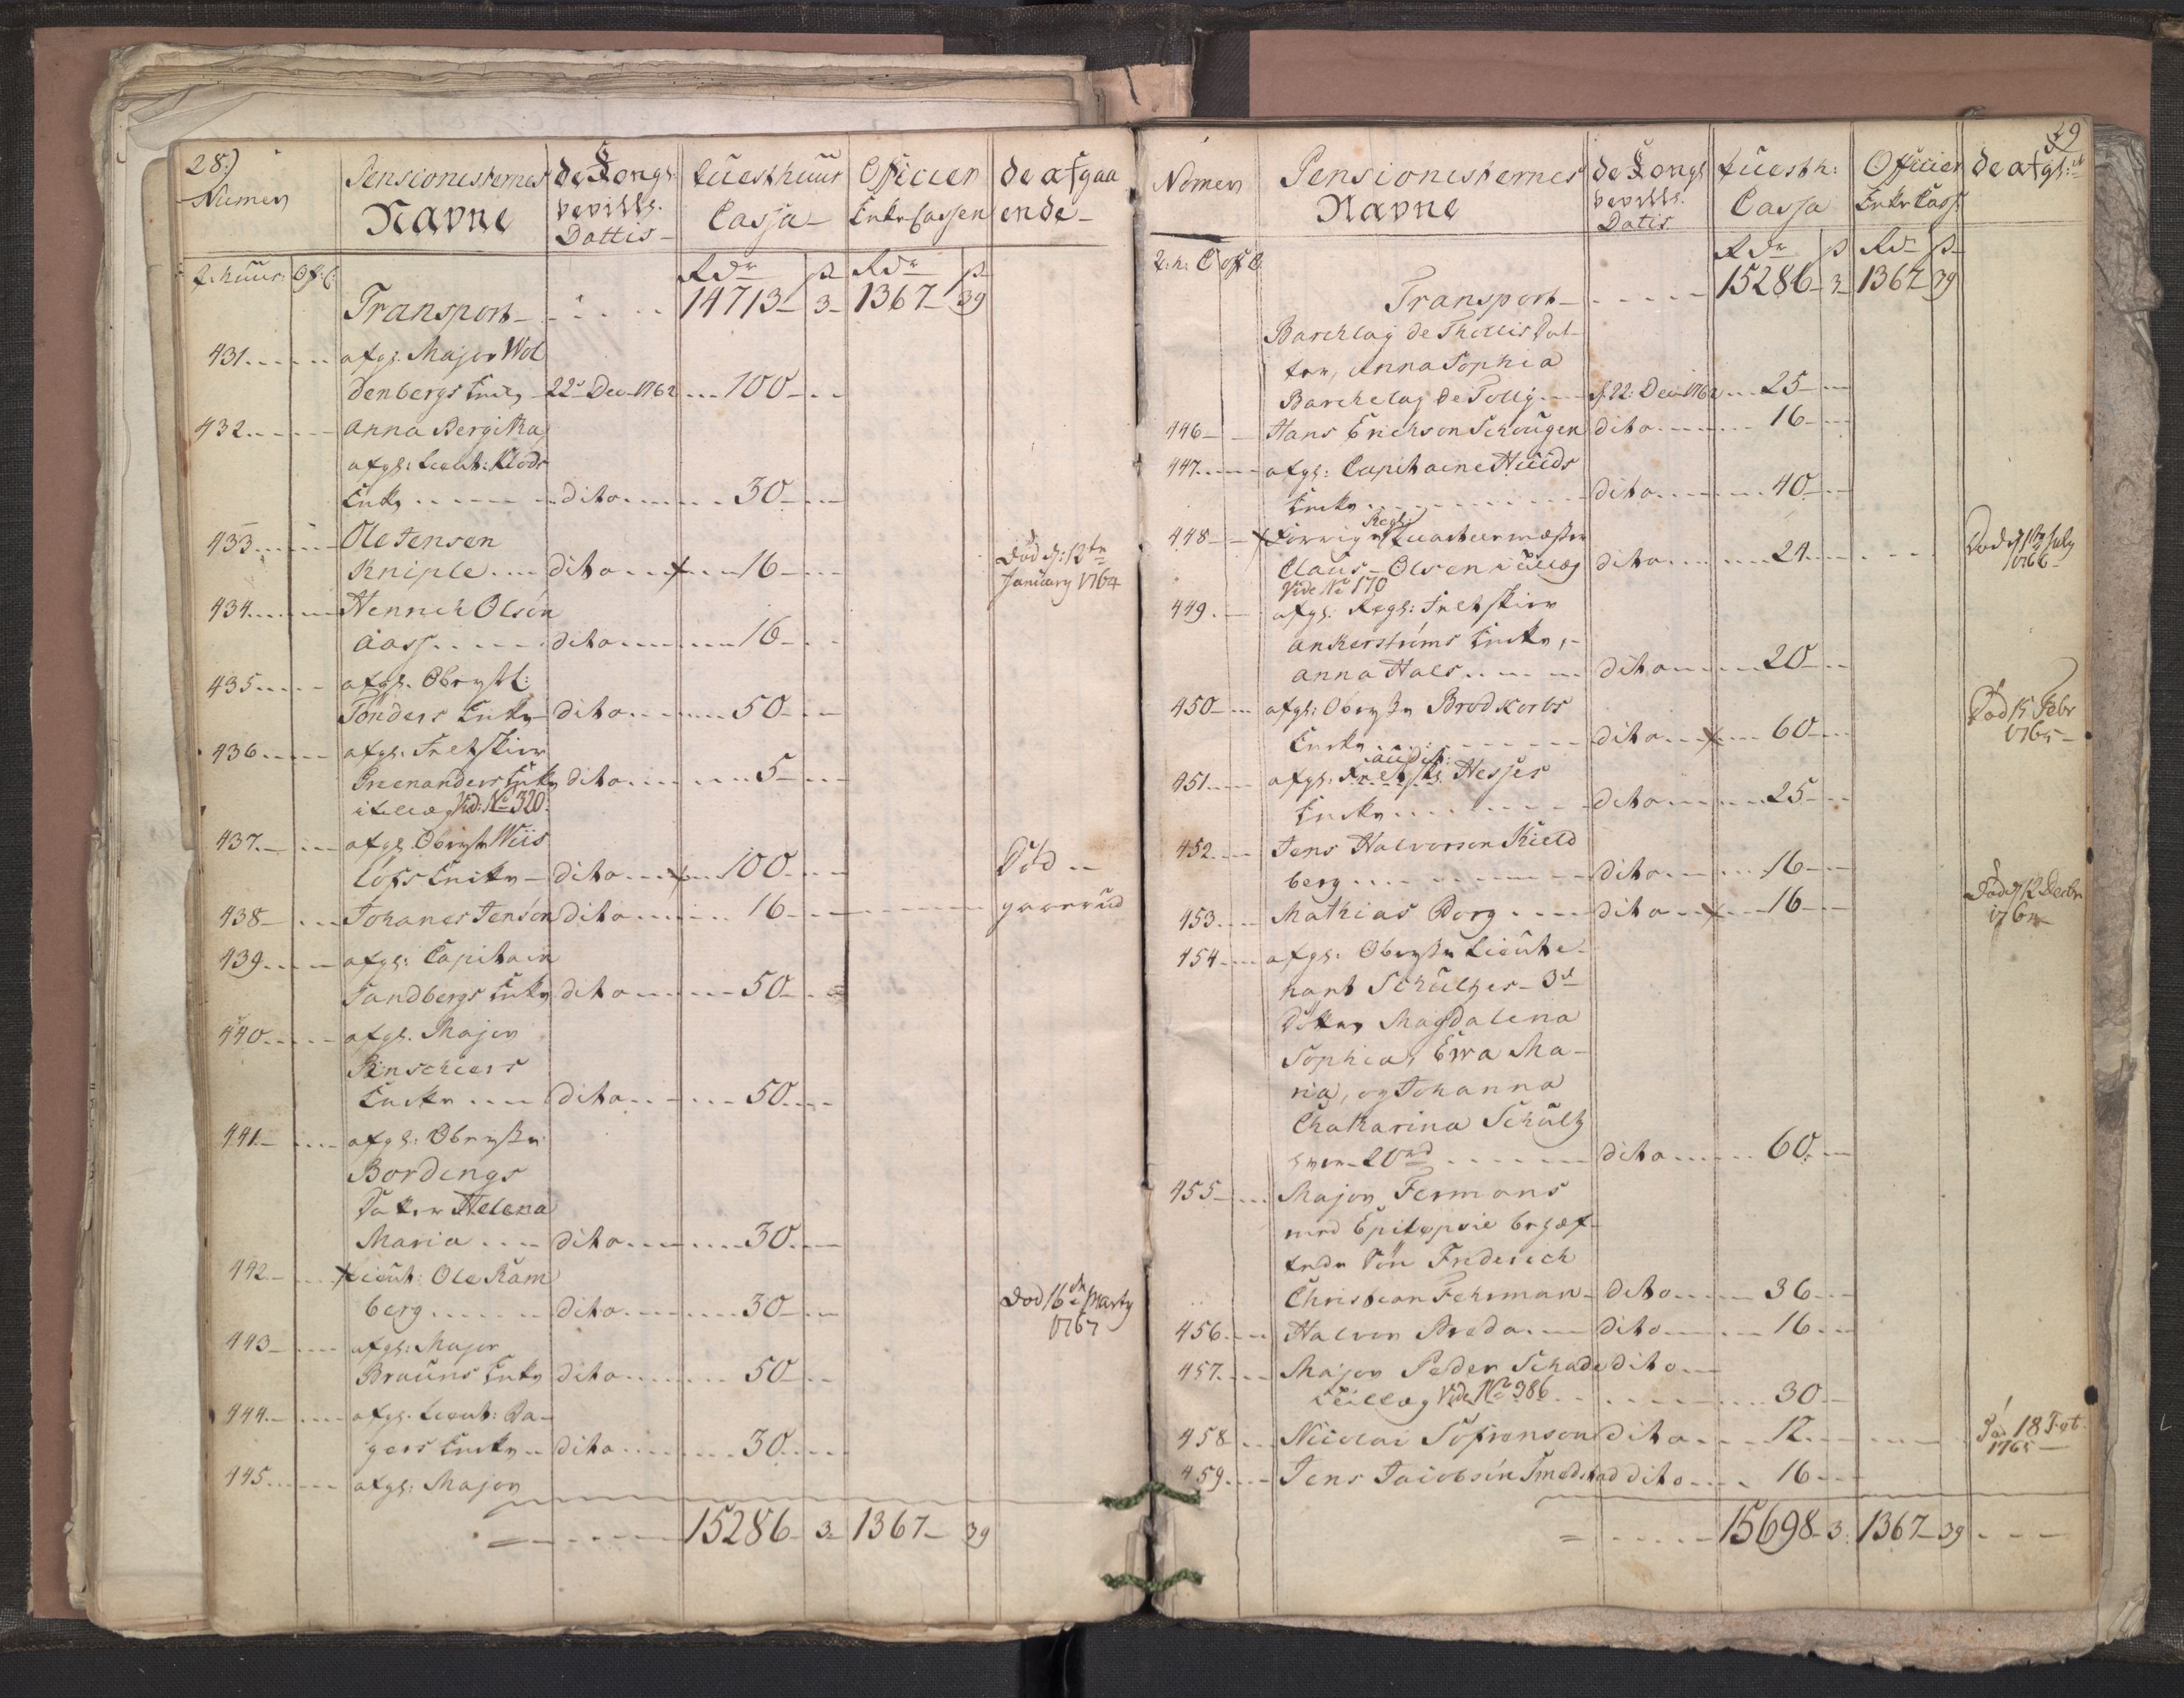 28.)
Numer
Pensionisternes
Navne
de Kongl:
bevills.
Dattis
Tucthuus
Cassa
Officier
Enke Cassen
de afgaa
ende
T: huus: Of: C:
Rdr ß Rdr ß
Transport 14713 3 1367 39
431 afgl. Major Wol
denbergs Enke 22 Dec 1762 100
432 Anna Bergitha
afgl: Lieut: Klods
Enke dito 30
433 Ole Jensen
Kniple dito 16 Død d: 12te
January 1764
434 Henrich Olsen
Aass dito 16
435 afgl. Obrystl:
Tønders Enke dito 50
436 afgl. Feltskier
Grenanders Enke dito 5
i tillæg Vid: No 320
437 afgl. Obryst Wiis
løfs Enke dito 100 Død
438 Johanes Jensen dito 16
439 afgl: Capitain
Sandbergs Enke dito 50
440 afgl. Major
Enke dito 50
441 afgl: Obryster
Bordings
Datter Helena
Maria dito 30
442 Lieut: Ole Ram
berg dito 30 Død 16de Marty
1767
443 afgl: Major
Brauns Enke dito 50
444 afgl. Lieut: Da-
gers Enke dito 30
445 afgl: Major
15286 3 1367 39
29
Nomer
Pensionisternes
Navne
de Kongl
bevills.
Datis
Tucth:
Cassa
Officier
Enke Cass:
de afgl:
T: h: C Off C
Rdr ß Rdr ß
Transport 15286 3 1367 39
Barchlay de Thollis Dat-
ter, Anna Sophia
Barchelay de Tolly d. 22: Dec 1762 25
446 Hans Erichson Schougen dito 16
447 afgl: Capitaine Huids
Enke dito 40
448 Forrige Regl: Quarteermester
Claus Olsen i tillæg dito 24 Død d July
1766
Vide No 170
449 afgl. Regl: Feltskier
Ankerstrøms Enke,
Anna Hals dito 20
450 afgl: Obryster Brodkorbs
Enke dito 60 Død 15 Febr
1765
451 afgl. Audit: Hesses
Enke dito 25
452 Jens Halvorsen Kield
berg dito 16
453 Mathias Borg dito 16 Død d 12 Decbr
1764
454 afgl: Obryster Lieute-
nant Schultzes 3de
Døttre Magdalena
Sophia, Ewa Ma-
ria, og Johanna
Chatharina Schultz
hver 20rd dito 60
455 Major Fermans
med Epilepsie behæf-
tede Søn Friderich
Christian Fehrman dito 36
456 Halvor Breda dito 16
457 Major Peder Schade dito
tillæg Vide No 386 30
458 Nicolai Sofrenson dito 12 18 Feb
1765
459 Jens Jacobsen Smedstad dito 16
15698 3 1367 39